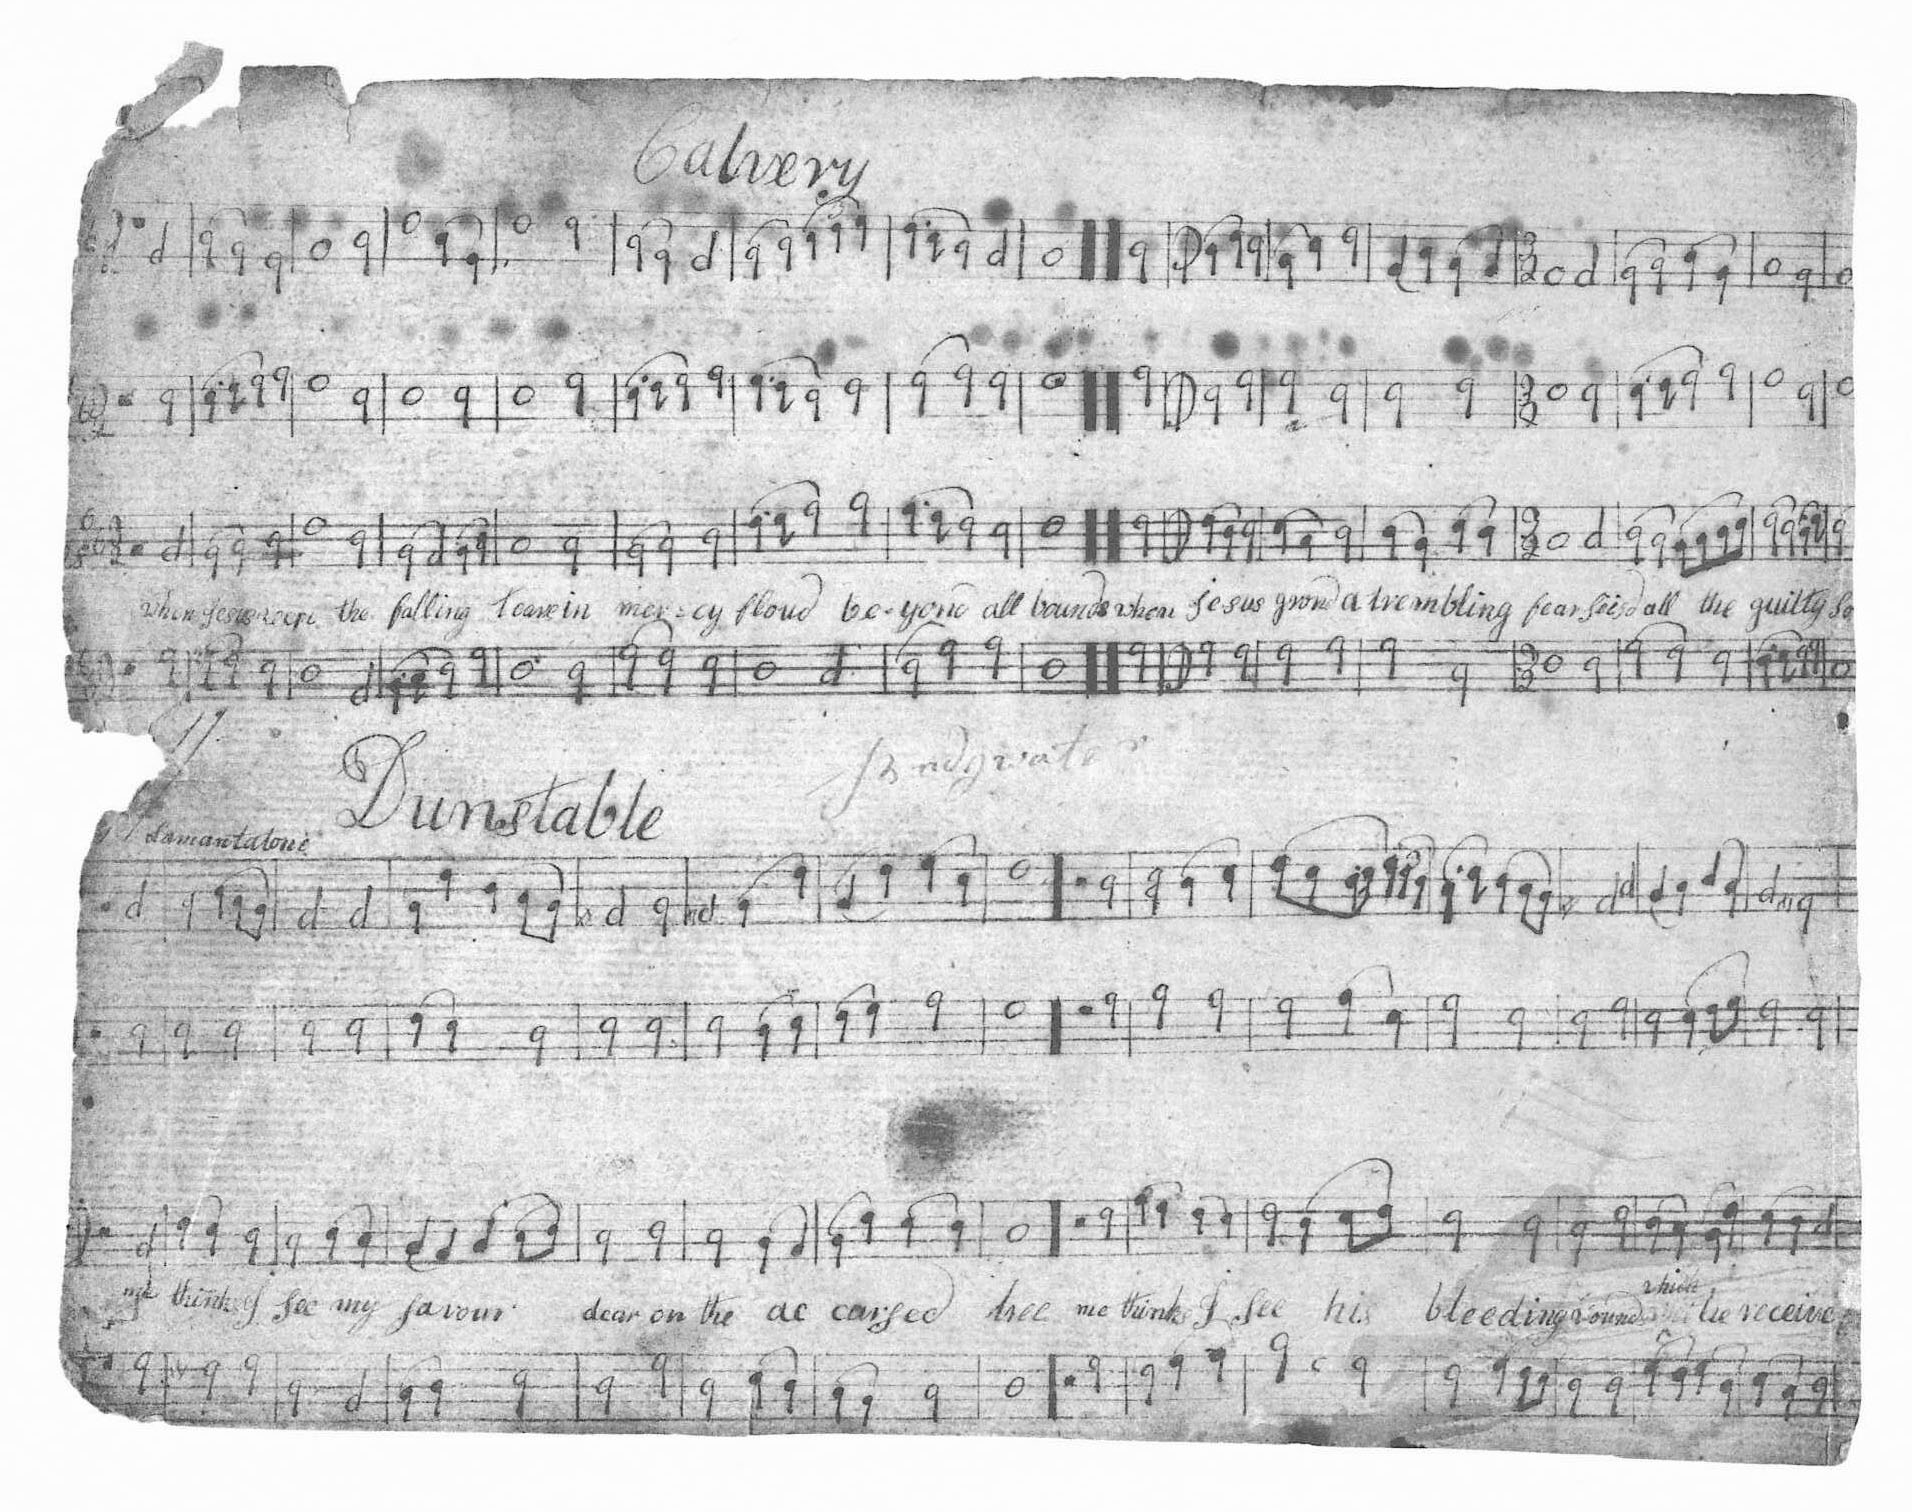 Calvery
when Jesus weept the falling teare in mer-cy floud be-yond all bounds when Jesus grond a trembling fear seisd all the guilty
Dunstable
me thinks I see my savour dear on the ac carsed tree me thinks I see his bleeding wounds which he receive